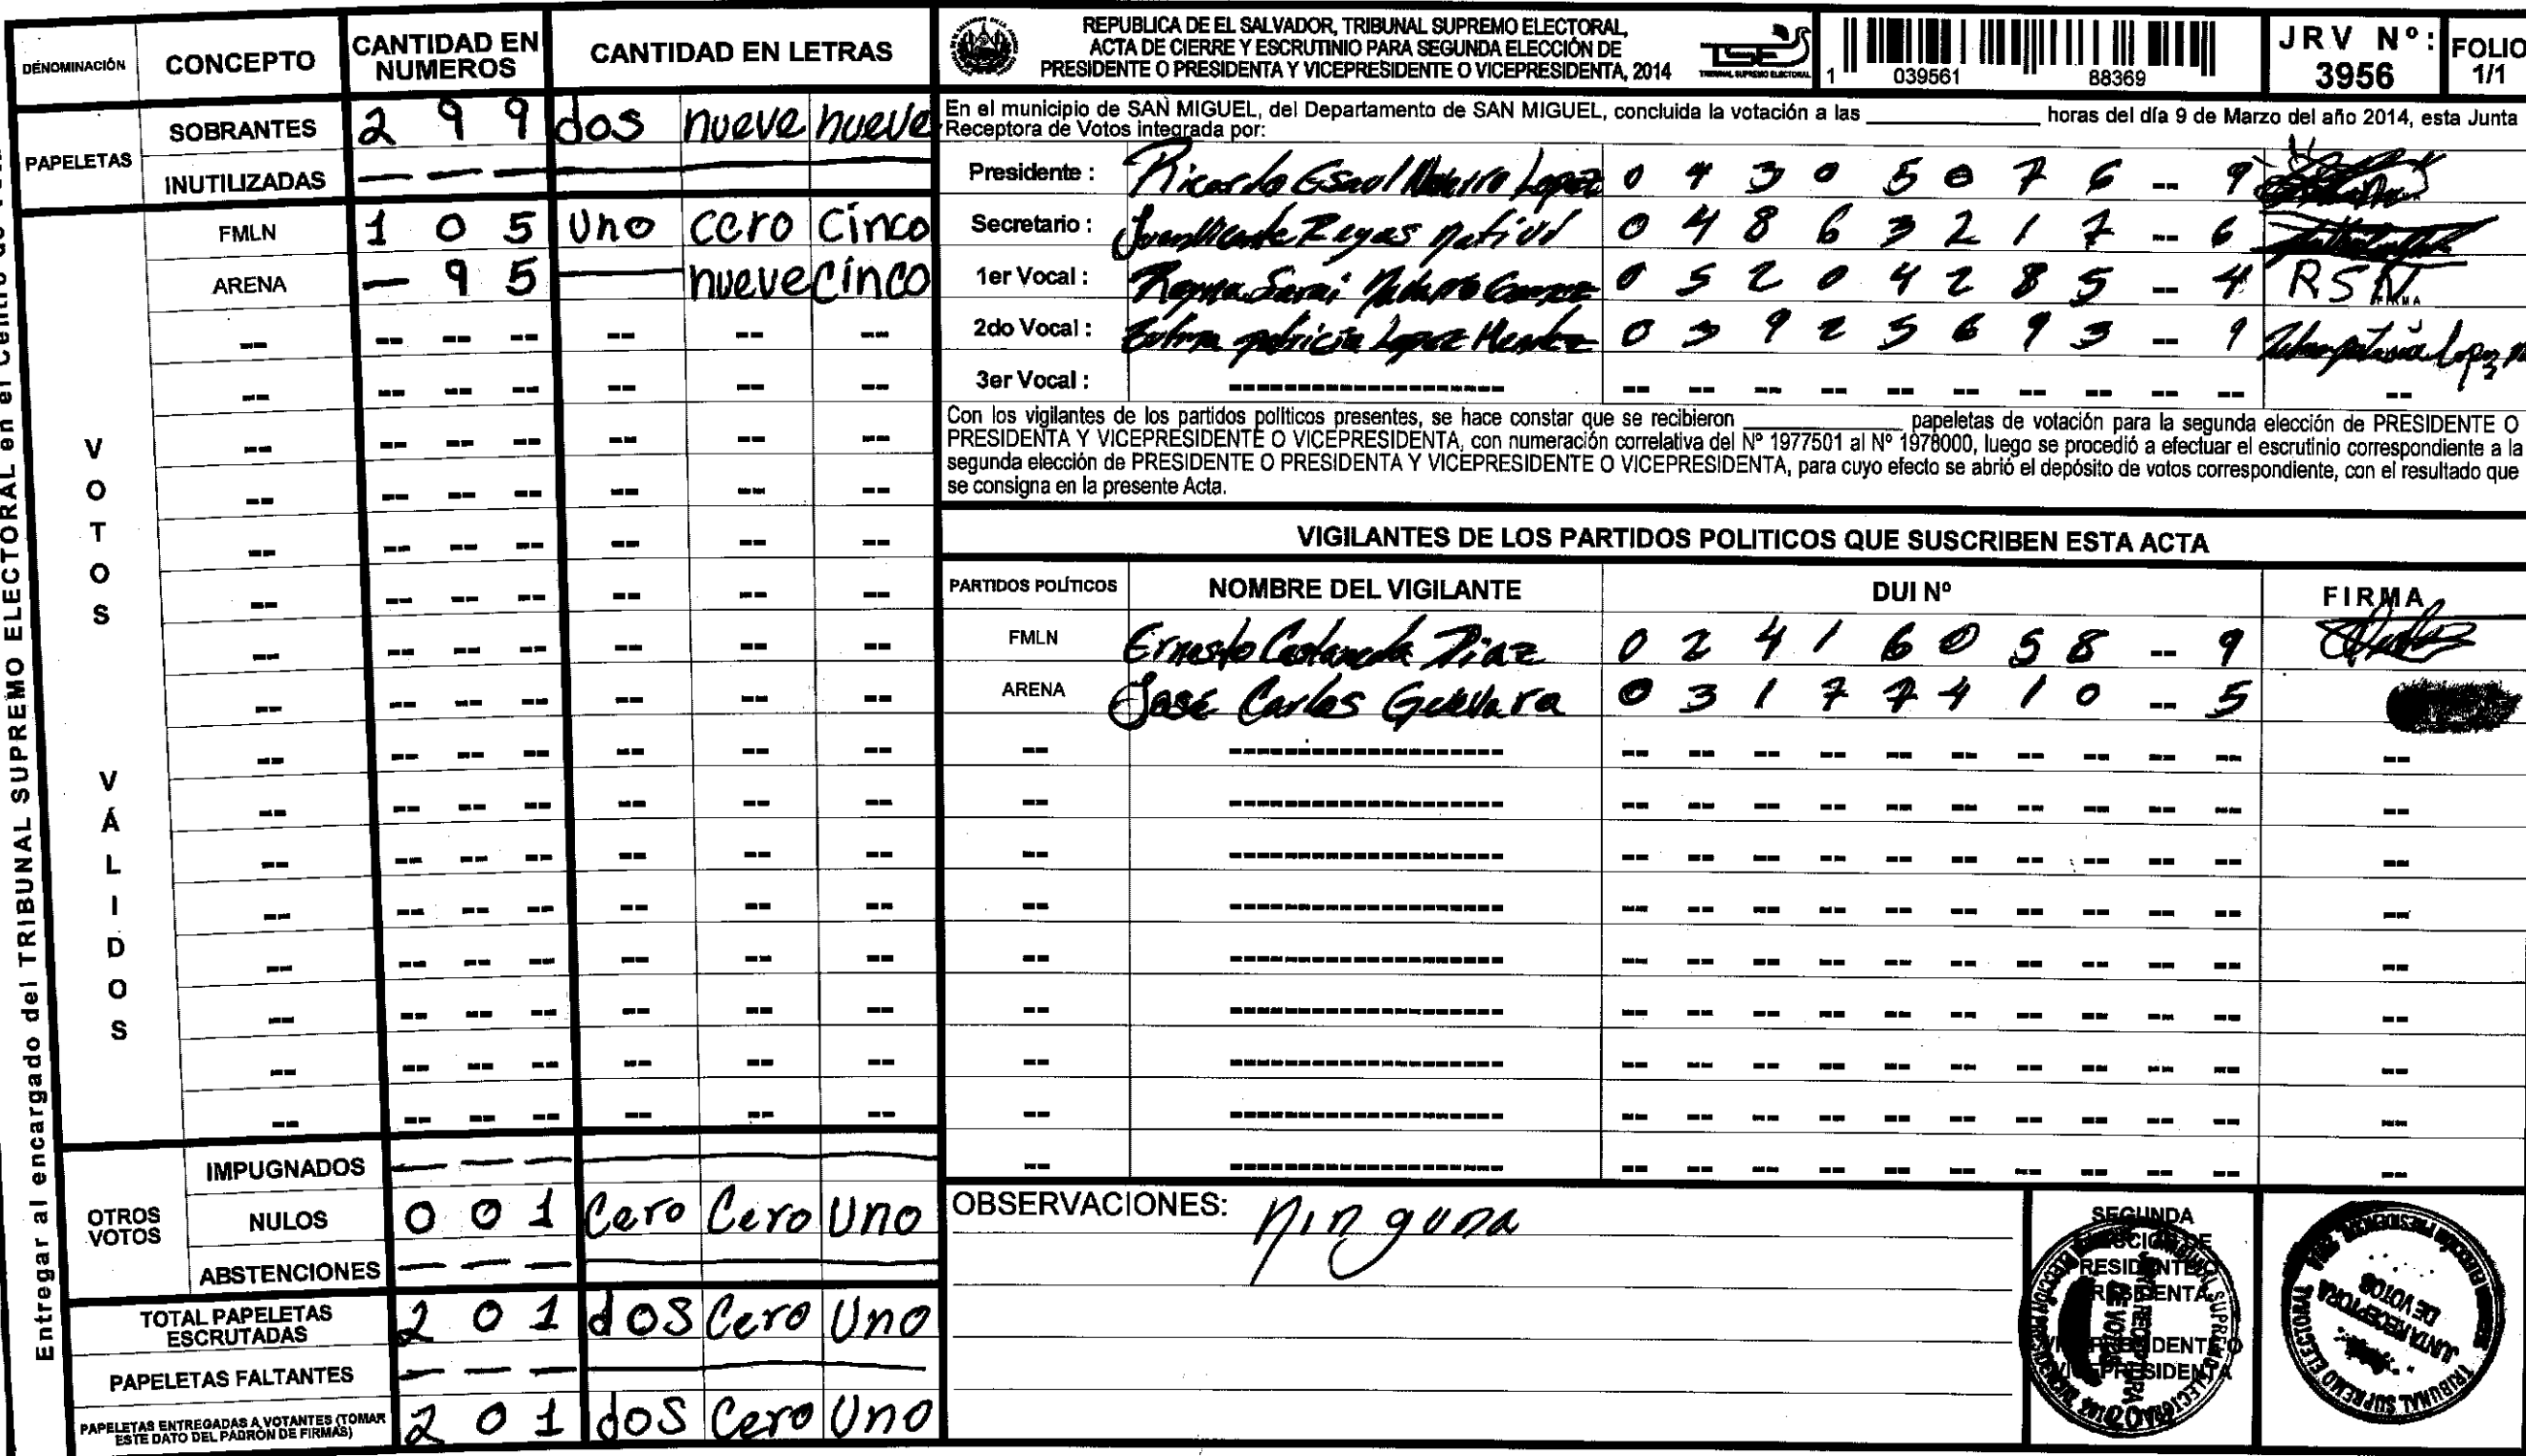 Entregar al encargado del TRIBUNAL SUPREMO ELECTORAL en el Centro de
DENOMINACIÓN CONCEPTO CANTIDAD EN NUMEROS CANTIDAD EN LETRAS
PAPELETAS
SOBRANTES 2 9 9 dos nueve nueve
INUTILIZADAS — — —
VOTOS VÁLIDOS
FMLN 1 0 5 Uno cero Cinco
ARENA — 9 5 — nueve cinco
OTROS VOTOS
IMPUGNADOS — — —
NULOS 0 0 1 Cero Cero Uno
ABSTENCIONES — — —
TOTAL PAPELETAS ESCRUTADAS 2 0 1 dos Cero Uno
PAPELETAS FALTANTES — — —
PAPELETAS ENTREGADAS A VOTANTES (TOMAR ESTE DATO DEL PADRÓN DE FIRMAS) 2 0 1 dos Cero Uno
REPUBLICA DE EL SALVADOR, TRIBUNAL SUPREMO ELECTORAL,
ACTA DE CIERRE Y ESCRUTINIO PARA SEGUNDA ELECCIÓN DE
PRESIDENTE O PRESIDENTA Y VICEPRESIDENTE O VICEPRESIDENTA, 2014
TRIBUNAL SUPREMO ELECTORAL
1 039561 88369
JRV Nº: 3956
FOLIO 1/1
En el municipio de SAN MIGUEL, del Departamento de SAN MIGUEL, concluida la votación a las ____ horas del día 9 de Marzo del año 2014, esta Junta
Receptora de Votos integrada por:
Presidente : Ricardo Esaul Navarro Lopez 0 4 3 0 5 0 7 6 -- 9
Secretario : Reyes 0 4 8 6 3 2 1 7 -- 6
1er Vocal : Sarai 0 5 2 0 4 2 8 5 -- 4 RSN
2do Vocal : patricia Lopez Mendez 0 3 9 2 5 6 9 3 -- 9
3er Vocal : --
Con los vigilantes de los partidos políticos presentes, se hace constar que se recibieron ____ papeletas de votación para la segunda elección de PRESIDENTE O
PRESIDENTA Y VICEPRESIDENTE O VICEPRESIDENTA, con numeración correlativa del Nº 1977501 al Nº 1978000, luego se procedió a efectuar el escrutinio correspondiente a la
segunda elección de PRESIDENTE O PRESIDENTA Y VICEPRESIDENTE O VICEPRESIDENTA, para cuyo efecto se abrió el depósito de votos correspondiente, con el resultado que
se consigna en la presente Acta.
VIGILANTES DE LOS PARTIDOS POLITICOS QUE SUSCRIBEN ESTA ACTA
PARTIDOS POLÍTICOS NOMBRE DEL VIGILANTE DUI Nº FIRMA
FMLN Ernesto Castaneda Diaz 0 2 4 1 6 0 5 8 -- 9
ARENA José Carlos Guevara 0 3 1 7 7 4 1 0 -- 5
OBSERVACIONES: Ninguna
SEGUNDA
ELECCIÓN DE
PRESIDENTE O
PRESIDENTA
VICEPRESIDENTE O
VICEPRESIDENTA
JUNTA RECEPTORA DE VOTOS
TRIBUNAL SUPREMO ELECTORAL